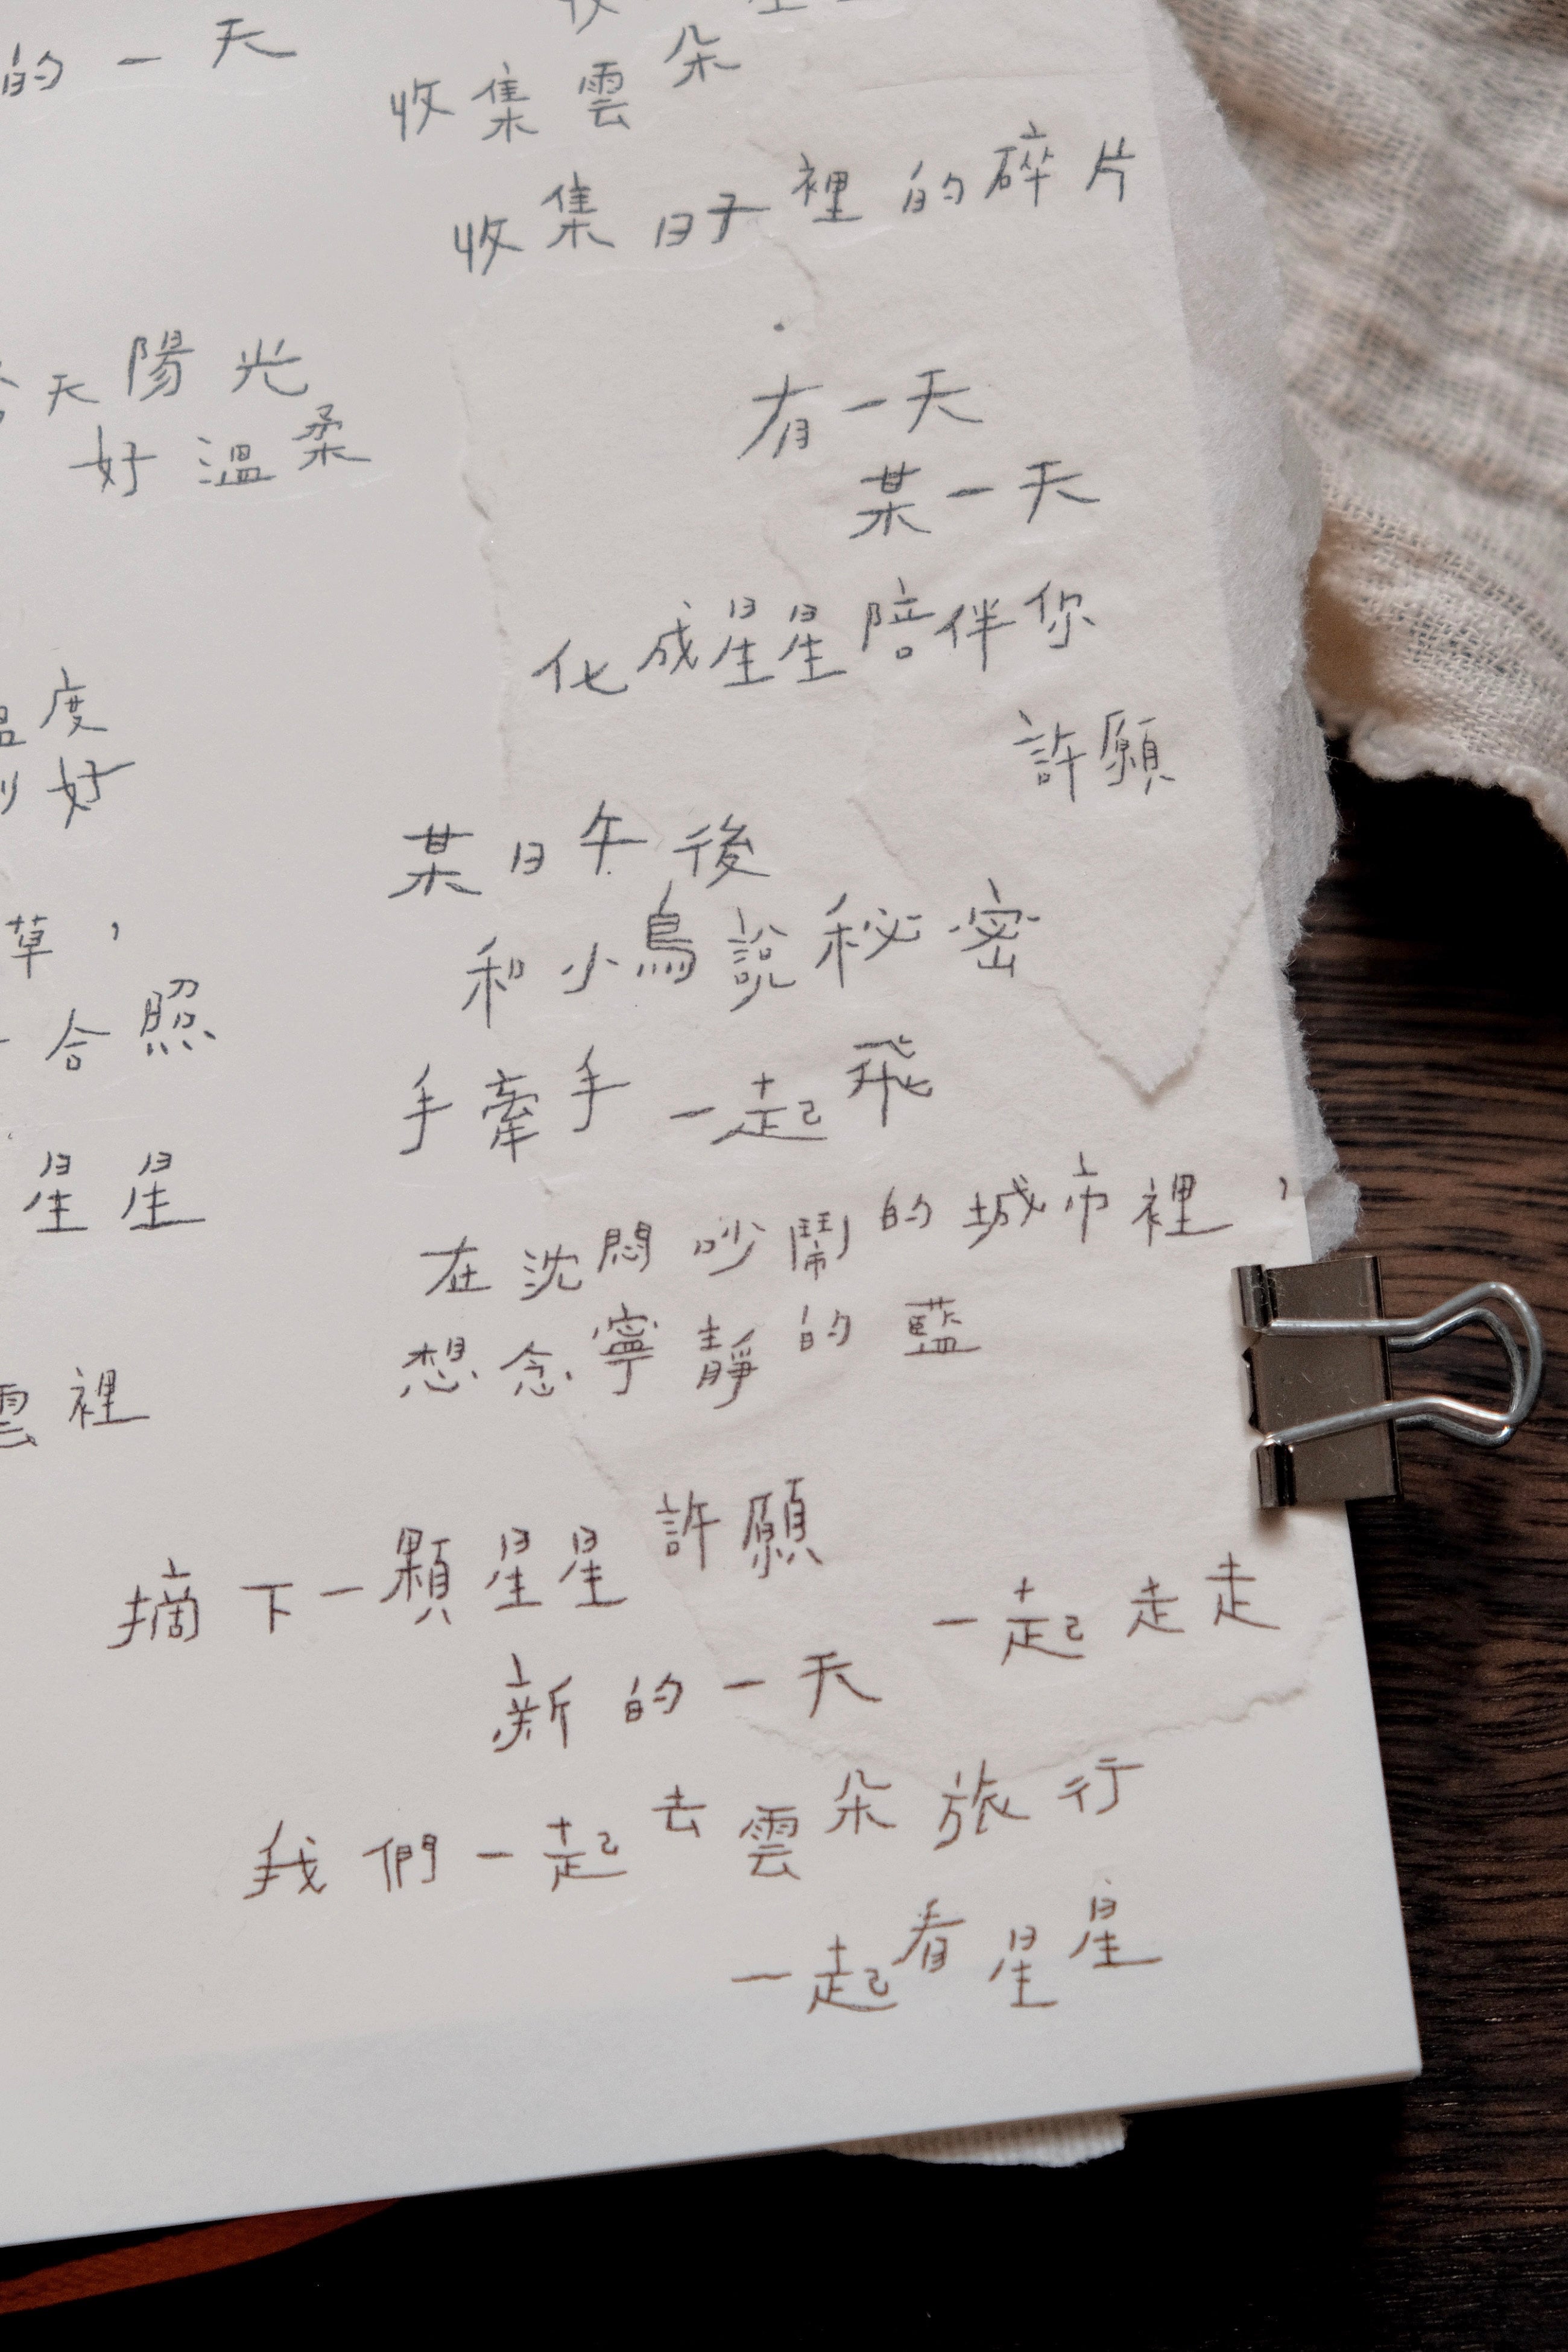 的一天
收集雲朵
收集日子裡的碎片
天陽光
好溫柔
有一天
某一天
化成星星陪伴你
許願
溫度
好
某日午後
和小鳥說秘密
草，
合照
手牽手一起飛
星星
在沈悶吵鬧的城市裡，
想念寧靜的藍
雲裡
摘下一顆星星許願
一起走走
新的一天
我們一起去雲朵旅行
一起看星星